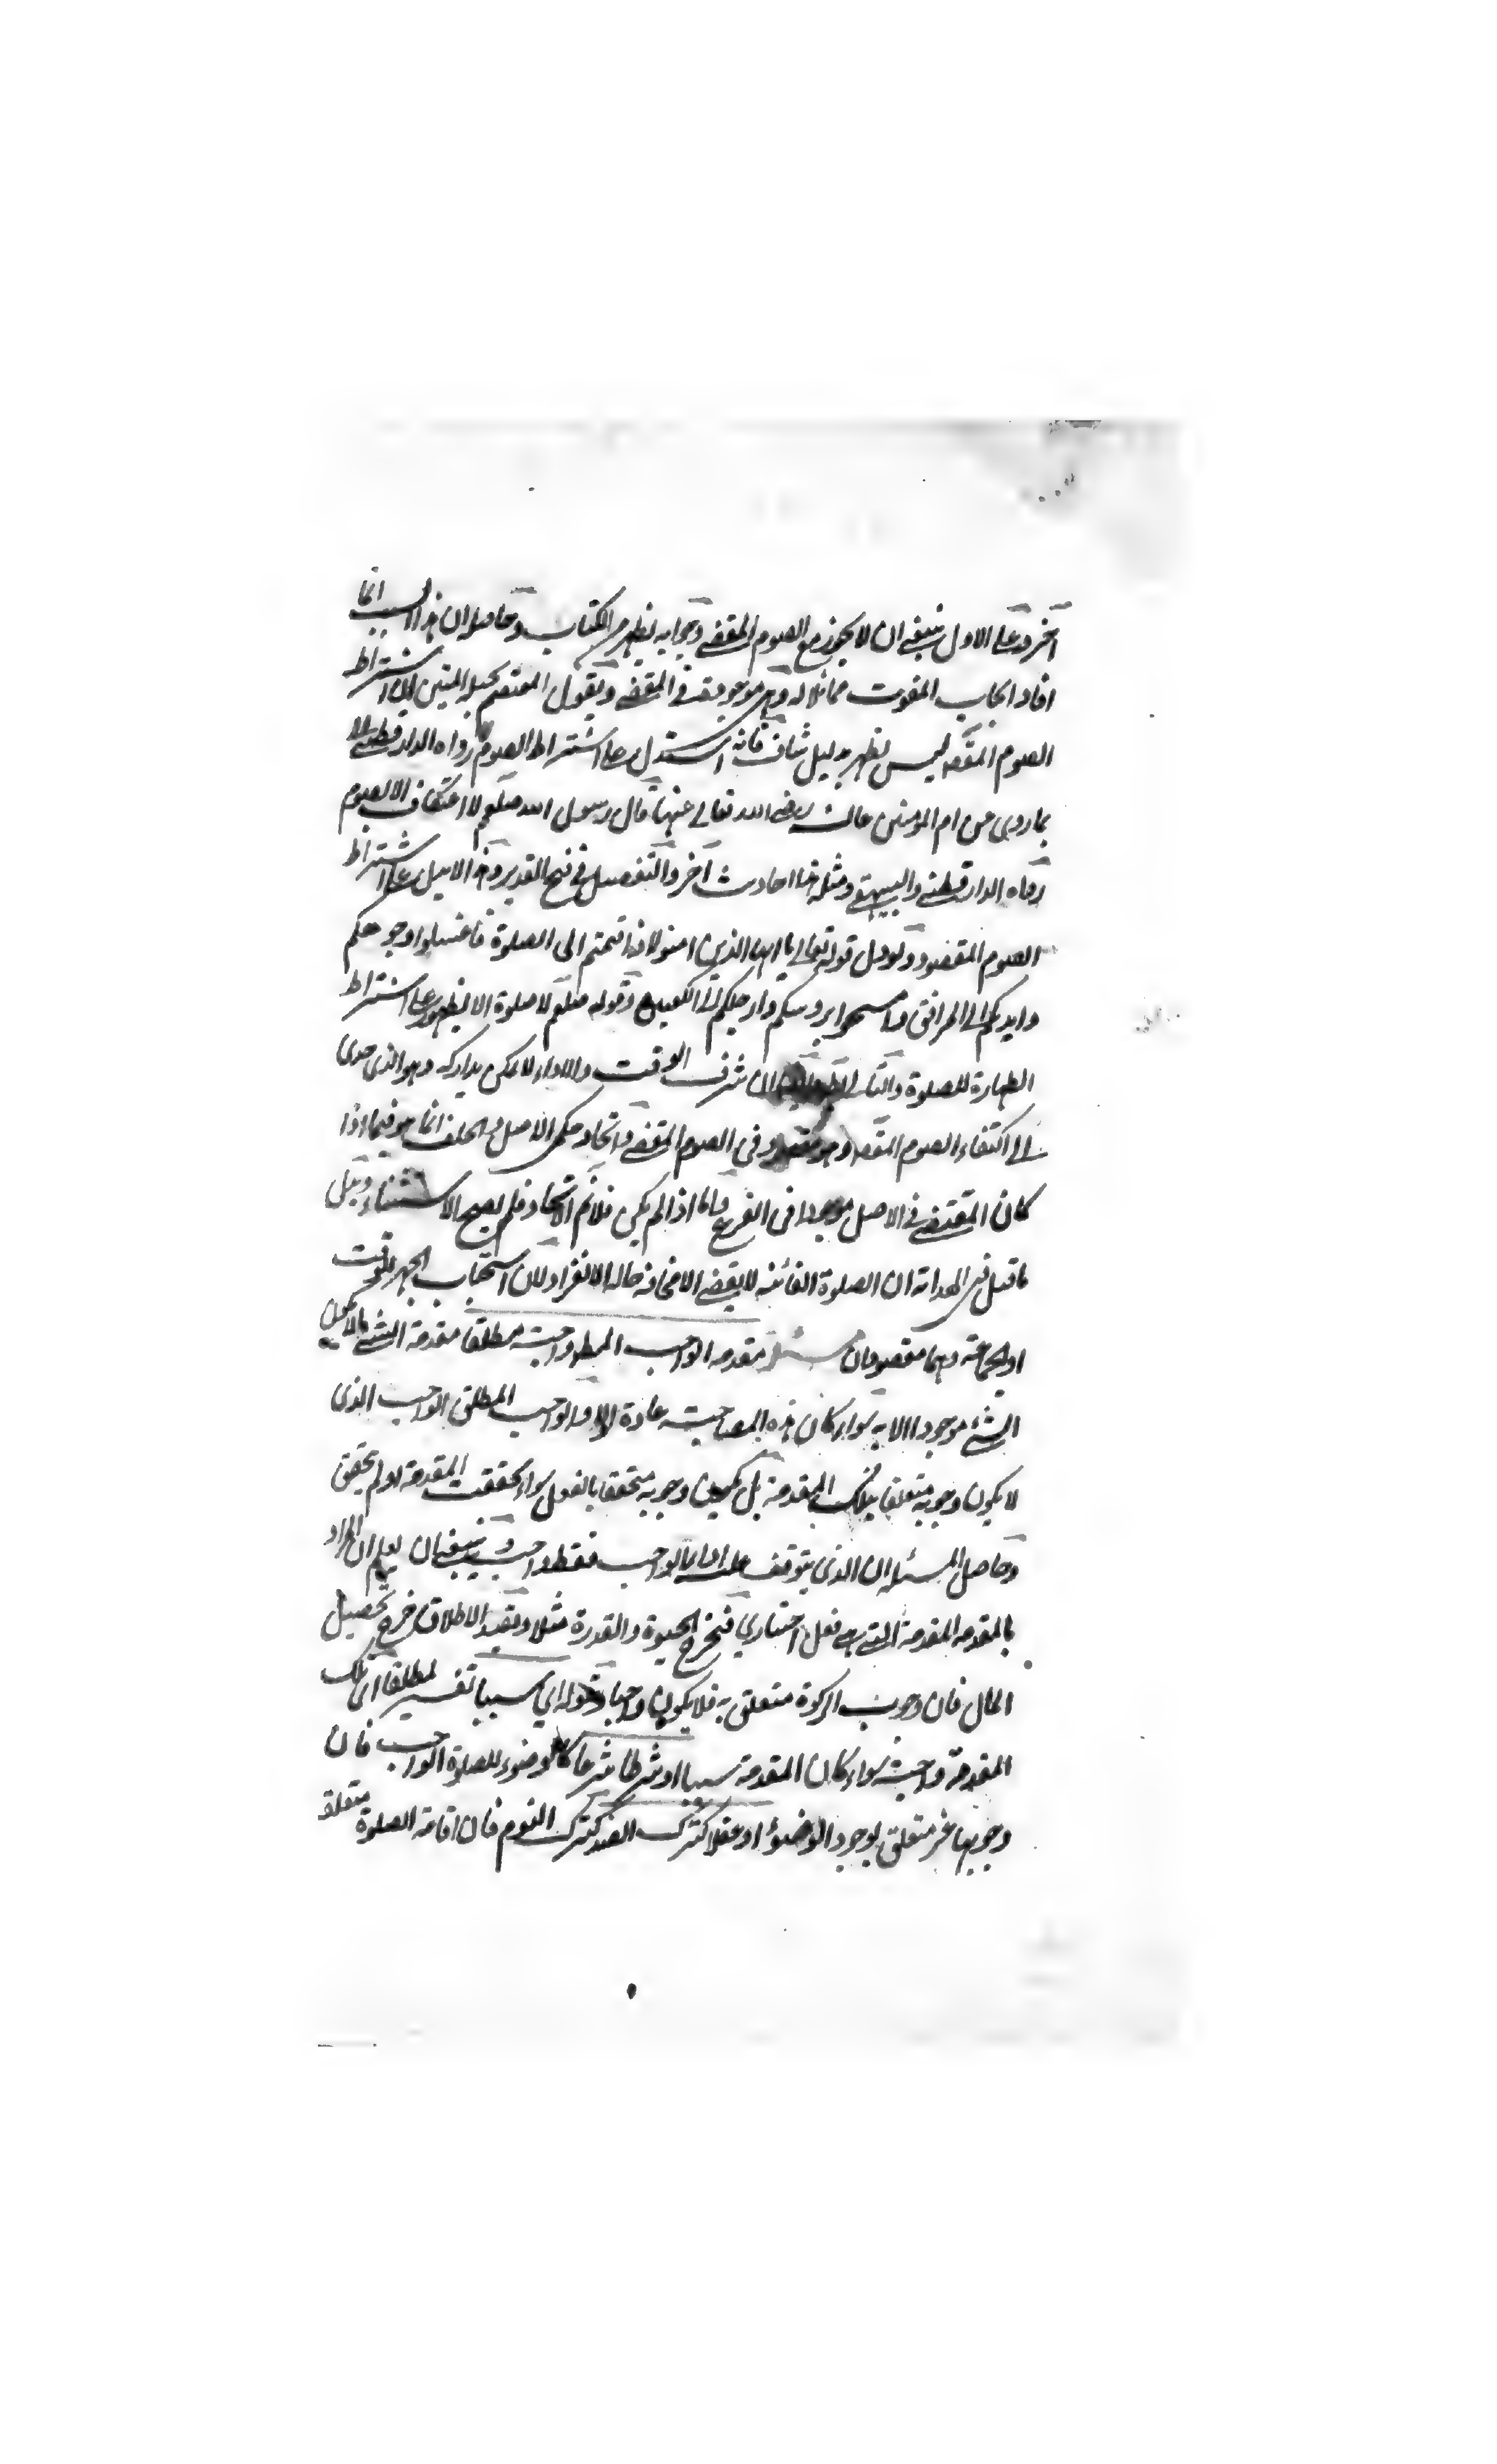 آخر وعلى الاول ينبغي ان لا يجوز مع الصوم المقضي وجوابه يظهر من الكتاب وحاصله ان هذا السبب انما
افاد ايجاب المفوت مماثلا له وهي موجودة في المقضي ويقول المعتصم بحبله المتين ان اشتراط
الصوم المقصود ليس يظهر بدليل شاف فانه استدل على اشتراط الصوم رواه الدارقطني
بما روي عن ام المؤمنين عائشة رضي الله تعالى عنها قال رسول الله صلعم لا اعتكاف الا لصوم
رواه الدارقطني والبيهقي ومثله احاديث آخر والتفصيل في فتح القدير وهذا لا يدل على اشتراط
الصوم المقصود ولو دل قوله تعالى يا ايها الذين امنوا اذا قمتم الى الصلوة فاغسلوا وجوهكم
وايديكم الى المرافق وامسحوا برؤسكم وارجلكم الى الكعبين وقوله صلعم لا صلوة الا بطهور على اشتراط
الطهارة للصلوة والثاني ان شرف الوقت والاداء لا يمكن تداركه وهو الذي هدى
الى اكتفاء الصوم المقصود وهو مفقود في الصوم المقضي واتحاد حكمي الاصل والخلف انما هو فيما اذا
كان المقتضي في الاصل موجودا في الفرع واما اذا لم يكن فلا نم الاتحاد فلم يصح الاستثناء وقيل
ما قيل في الهداية ان الصلوة الفائتة لا يقضي الا مخافتة حالة الانفراد لان استحباب الجهر للوقت
او الجماعة وهما مفقودان مسئلة مقدمة الواجب المطلق واجبة مطلقا مقدمة الشئ ما لا يكون
الشئ موجودا الا به سواء كان هذه المصاحبة عادة اولا والواجب المطلق الواجب الذي
لا يكون وجوبه متعلقا بتلك المقدمة بل يكون وجوبه متحققا بالفعل سواء تحققت المقدمة او لم تحقق
وحاصل المسئلة ان الذي يتوقف عليه اداء الواجب فقط واجب وينبغي ان يعلم ان المراد
بالمقدمة المقدمة التي هي فعل اختياري فتخرج الحيوة والقدرة مثلا وبقيد الاطلاق خرج تحصيل
المال فان وجوب الزكوة متعلق به فلا يكون واجبا وقوله اي سببا تفسير لمطلقا اي تلك
المقدمة واجبة سواء كان المقدمة سببا او شرطا شرعا كالوضوء للصلوة الواجب فان
وجوبها غير متعلق بوجود الوضوء او عقلا كترك الضد كترك النوم فان اقامة الصلوة متعلقة